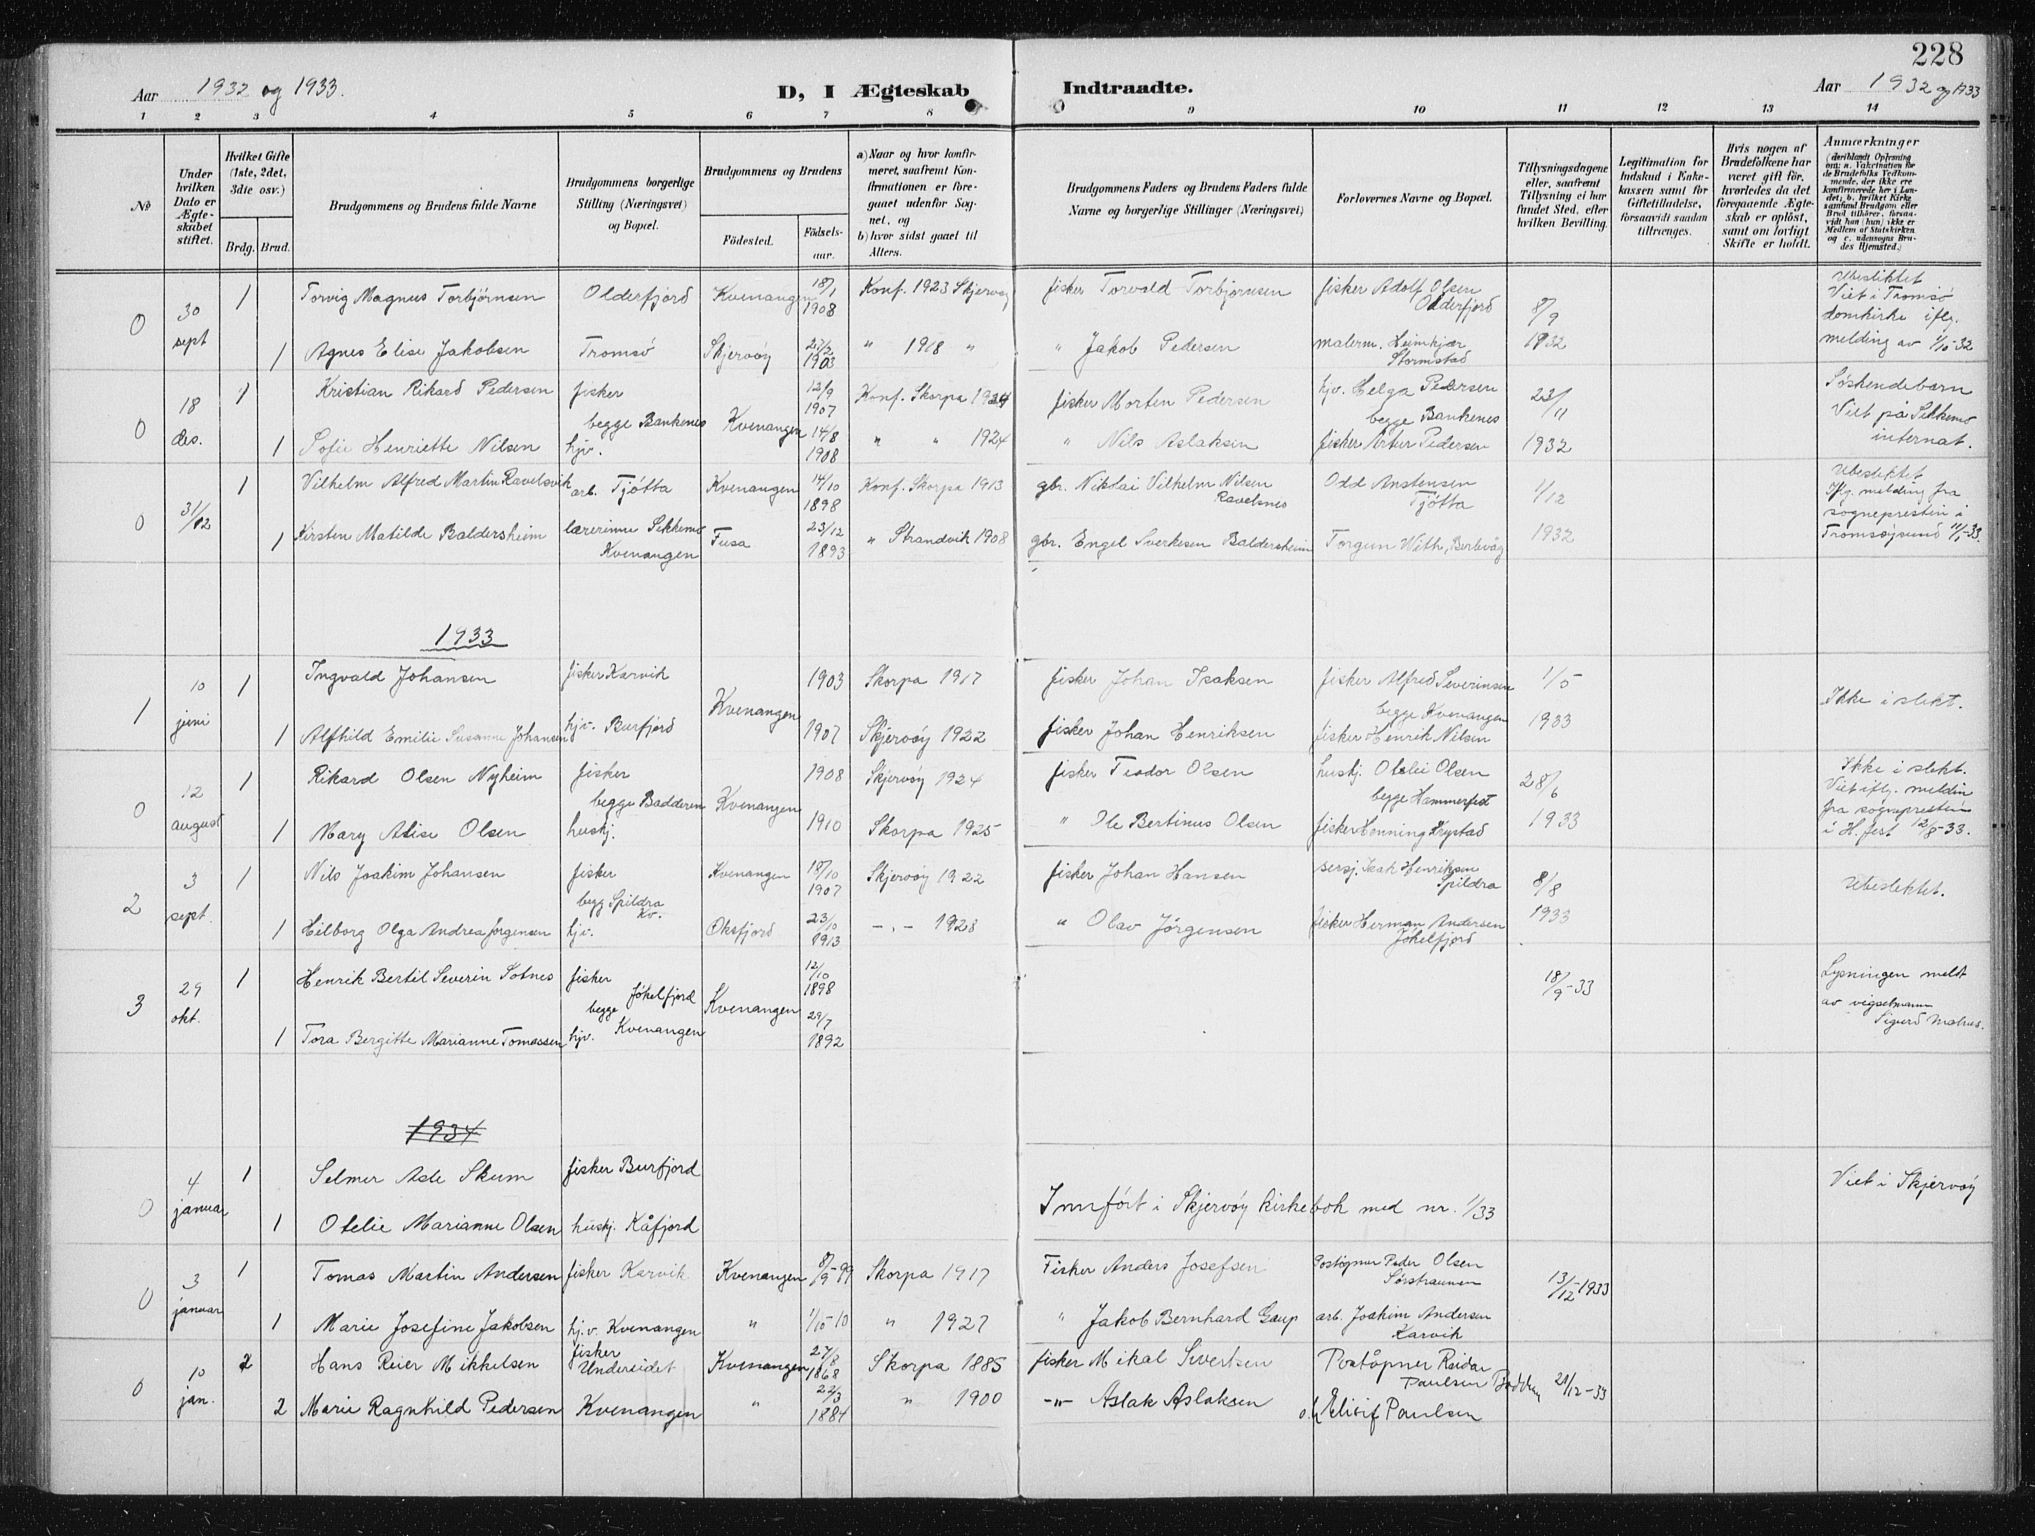 228
Aar 1932 og 1933.
D, I Ægteskab Indtraadte.
Aar 1932 og 1933
1 2 3 4 5 6 7 8 9 10 11 12 13 14
No
Under hvilken Dato er Ægteskabet stiftet.
Hvilket Gifte (1ste, 2det, 3die osv.)
Brdg. Brud.
Brudgommens og Brudens fulde Navne
Brudgommens borgerlige Stilling (Næringsvei) og Bopæl.
Brudgommens og Brudens
Födested. Födsels-aar.
a) Naar og hvor konfirmeret, saafremt Konfirmationen er foregaaet udenfor Sognet, og
b) hvor sidst gaaet til Alters.
Brudgommens Faders og Brudens Faders fulde Navne og borgerlige Stillinger (Næringsvei)
Forlovernes Navne og Bopæl.
Tillysningsdagene eller, saafremt Tillysning ei har fundet Sted, efter hvilken Bevilling.
Legitimation for Indskud i Enkekassen samt for Giftetilladelse, forsaavidt saadan tiltrænges.
Hvis nogen af Brudefolkene har været gift för, hvorledes da det foregaaende Ægteskab er oplöst, samt om lovligt Skifte er holdt.
Anmærkninger
(deriblandt Oplysning om: a. Vakcination for de Brudefolks Vedkommende, der ikke ere konfirmerede her i Landet; b. hvilket Kirkesamfund Brudgom eller Brud tilhörer, forsaavidt han (hun) ikke er Medlem af Statskirken og c. udensogns Brudes Hjemsted.)
0 30 sept 1 Torvig Magnus Torbjørnsen Olderfjord Kvenangen 18/1 1908 Konf. 1923 Skjervøy fisker Torvald Torbjørnsen fisker Adolf Olsen Olderfjord 8/9 1932 Ubesliktet Viet i Tromsø domkirke iflg. melding av 1/10-32
1 Agnes Elise Jakobsen Tromsø Skjervøy 23/2 1903 " 1918 " " Jakob Pedersen malerm. Heimkjær Stormstad
0 18 des. 1 Kristian Rikard Pedersen fisker begge Bankenes Kvenangen 12/9 1907 Konf. Skorpa 1924 fisker Morten Pedersen hjv. Helga Pedersen begge Bankenes 23/11 1932 Søskendebarn Viet på Sekkemo internat.
1 Sofie Henriette Nilsen hjv. 14/8 1908 " " 1924 " Nils Aslaksen fisker Artur Pedersen
0 31/12 1 Vilhelm Alfred Martin Ravelsvik arb. Tjøtta Kvenangen 14/10 1898 Konf. Skorpa 1913 gbr. Nikolai Vilhelm Nilsen Ravelsnes Odd Anstensen Tjøtta 1/12 1932 Ubesliktet Iflg. melding fra sognepresten i Tromsøysund 11/1-33.
1 Kirsten Matilde Baldersheim lærerinne Sekkemo Kvenangen Fusa 23/12 1893 " Strandvik 1908 gbr. Engel Sverkesen Baldersheim Torgun With, Berlevåg
1933
1 10 juni 1 Ingvald Johansen fisker Karvik Kvenangen 1903 Skorpa 1917 fisker Johan Isaksen fisker Alfred Severinsen begge Kvenangen 1/5 1933 Ikke i slekt.
1 Alfhild Emilie Susanne Johansen hjv. Burfjord 1907 Skjervøy 1922 fisker Johan Henriksen fisker Henrik Nilsen
0 12 august 1 Rikard Olsen Nyheim fisker begge Badderen Kvenangen 1908 Skjervøy 1924 fisker Teodor Olsen huskj. Otelie Olsen begge Hammerfest 28/6 1933 Ikke i slekt. Viet iflg. meldin fra sognepresten i H.fest 12/8-33.
1 Mary Alise Olsen huskj. 1910 Skorpa 1925 " Ole Bertinus Olsen fisker Henning Krystad
2 3 sept. 1 Nils Joakim Johansen fisker begg Spildra Kv. Kvenangen 18/10 1907 Skjervøy 1922 fisker Johan Hansen sersj. Isak Henriksen Spildra 8/8 1933 Ubesliktet.
1 Hilborg Olga Andrea Jørgensen hjv. Oksfjord 23/10 1913 -.- 1928 " Olav Jørgensen fisker Herman Andersen Jøkelfjord
3 29 okt. 1 Henrik Bertil Severin Sotnes fisker begge Jøkelfjord Kvenangen Kvenangen 12/10 1898 18/9-33 Lysningen meldt av vigselmann Sigurd Malnes.
1 Tora Bergitte Marianne Tomassen hjv. 29/7 1892
1934
0 4 januar 1 Selmer Asle Skum fisker Burfjord Innført i Skjervøy kirkebok med nr. 1/33 Viet i Skjervøy
1 Otelie Marianne Olsen huskj. Kåfjord
0 3 januar 1 Tomas Martin Andersen fisker Karvik Kvenangen 8/9-99 Skorpa 1917 Fisker Anders Josefsen Postopner Peder Olsen Sørstraumen 13/12-1933
1 Marie Josefine Jakobsen hj.v. Kvenangen " 1/10-10 " 1927 " Jakob Bernhard Gaup arb. Joakim Andersen Karvik
0 10 jan. 2 Hans Reier Mikkelsen fisker Undereidet Kvenangen 27/8 1868 Skorpa 1885 fisker Mikal Sivertsen Poståpner Reidar Paulsen 21/12-33
2 Marie Ragnhild Pedersen Kvenangen " 22/3 1884 " 1900 -"- Aslak Aslaksen og Elisif Paulsen